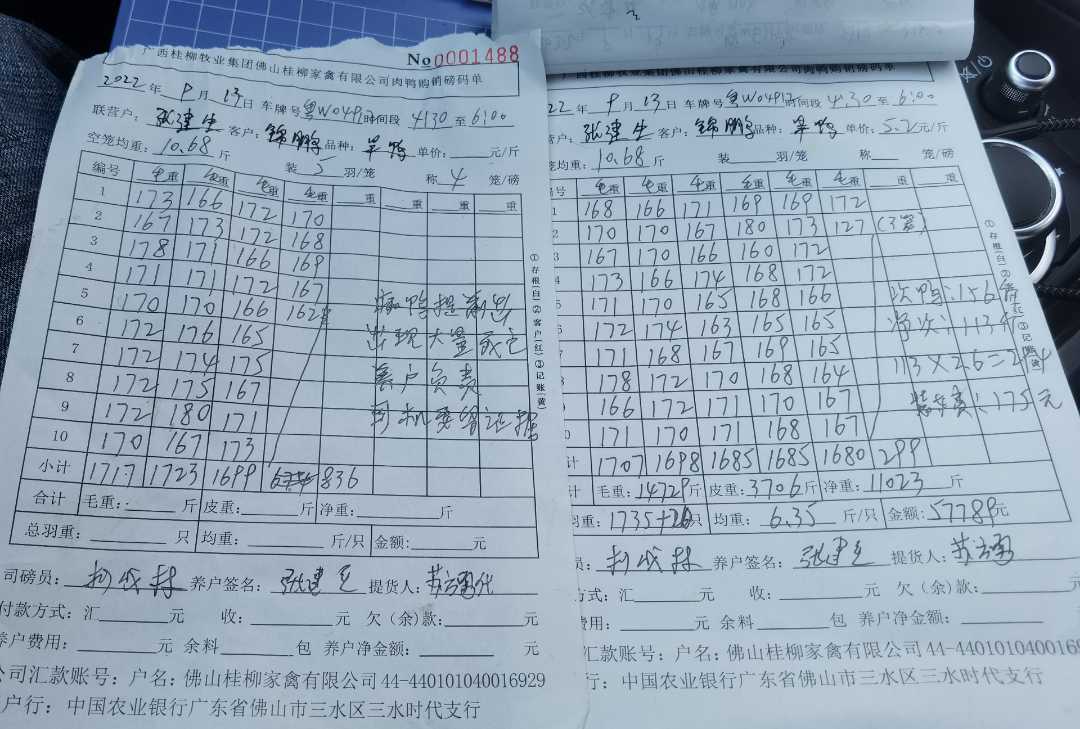 广西桂柳牧业集团佛山桂柳家禽有限公司肉鸭购销磅码单
No 0001488
2022年 9月 13日 车牌号 粤W04917 时间段 4:30 至 6:00
联营户: 张建生 客户: 锦鹏 品种: 单价: 元/斤
空笼均重: 10.68 斤 装 5 羽/笼 称 4 笼/磅
编号 毛重 毛重 毛重 毛重 重 重 重 重
1 173 166 172 170
2 167 173 172 168
3 178 171 166 169
4 171 171 172 167
5 170 170 166 162
6 172 176 165
7 172 174 175
8 172 175 167
9 172 180 171
10 170 167 173
小计 1717 1723 1699 836
出现大量死亡
客户负责
司机要留证据
合计 毛重: 斤 皮重: 斤 净重: 斤
总羽重: 只 均重: 斤/只 金额: 元
司磅员: 养户签名: 提货人:
付款方式: 汇 元 收: 元 欠(余)款: 元
养户费用: 元 余料 包 养户净金额: 元
公司汇款账号: 户名: 佛山桂柳家禽有限公司 44-440101040016929
户行: 中国农业银行广东省佛山市三水区三水时代支行
①存根(白)②客户(红)③记账(黄)
广西桂柳牧业集团佛山桂柳家禽有限公司肉鸭购销磅码单
22年 9月 13日 车牌号 粤W04917 时间段 4:30 至 6:00
营户: 张建生 客户: 锦鹏 品种: 单价: 5.2元/斤
笼均重: 10.68 斤 装 羽/笼 称 笼/磅
号 毛重 毛重 毛重 毛重 毛重 毛重 重 重
1 168 166 171 169 169 172
2 170 170 167 180 173 127 (3笼)
3 167 170 166 160 172
4 173 166 174 168 172
5 171 170 165 168 166
6 172 174 163 165 165
7 171 168 167 169 165
8 178 172 170 168 164
9 166 172 171 170 167
0 171 170 171 168 167
计 1707 1698 1685 1685 1680 299
次鸭:156
净次:113斤
113×2.6=294
装车费:175元
计 毛重: 14729斤 皮重: 3706斤 净重: 11023 斤
羽重: 1735+ 只 均重: 6.35 斤/只 金额: 57789元
员: 养户签名: 提货人:
方式: 汇 元 收: 元 欠(余)款: 元
费用: 元 余料 包 养户净金额:
汇款账号: 户名: 佛山桂柳家禽有限公司 44-4401010400169
行: 中国农业银行广东省佛山市三水区三水时代支行